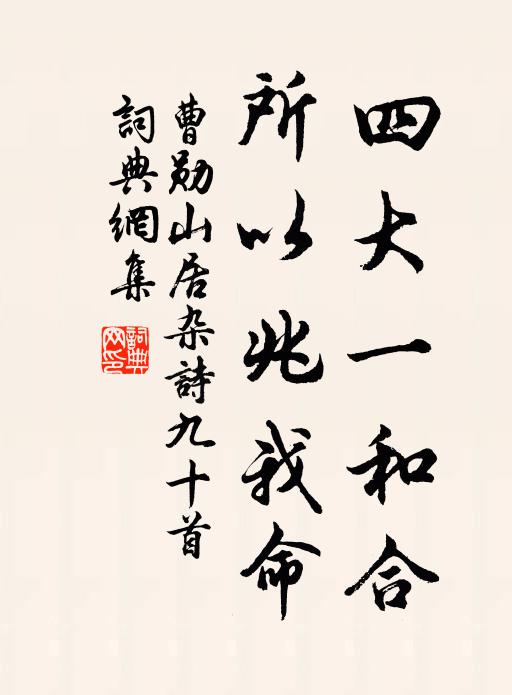 四大一和合
所以兆我命
曹勋山居杂詩九十首
詞典網集
詞典網印